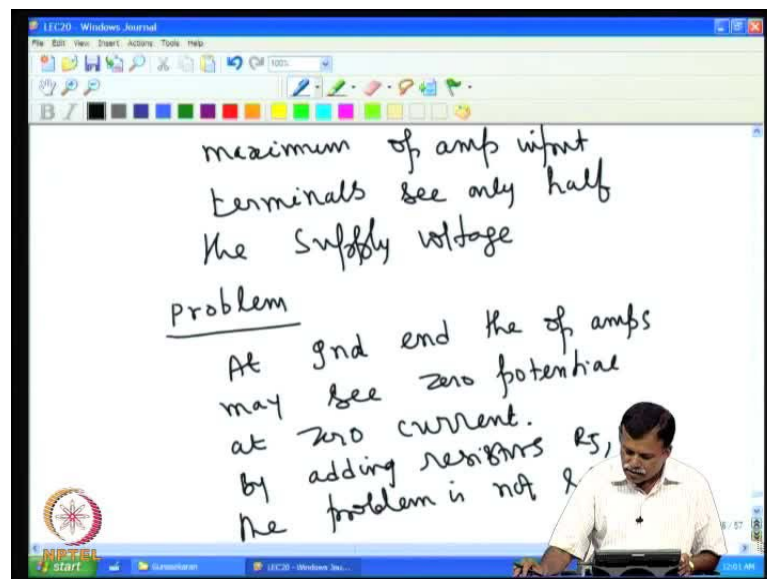 LEC20 - Windows Journal
File Edit View Insert Actions Tools Help
100%
B I
maximum op amp input
terminals see only half
the supply voltage
Problem
At gnd end the op amps
may see zero potential
at zero current.
by adding resistors R5,
the problem is not
/ 57
NPTEL
start
Gunasekaran
LEC20 - Windows Jou...
12:01 AM